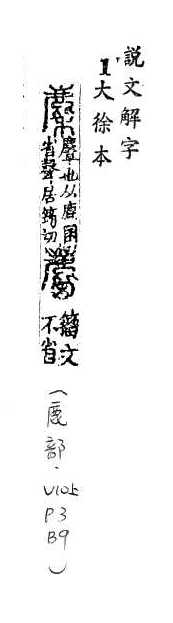 説文解字
1大徐本
麇
麞也从鹿囷
省聲居筠切
麕
籒文
不省
(鹿部.V10上
P3
B9)